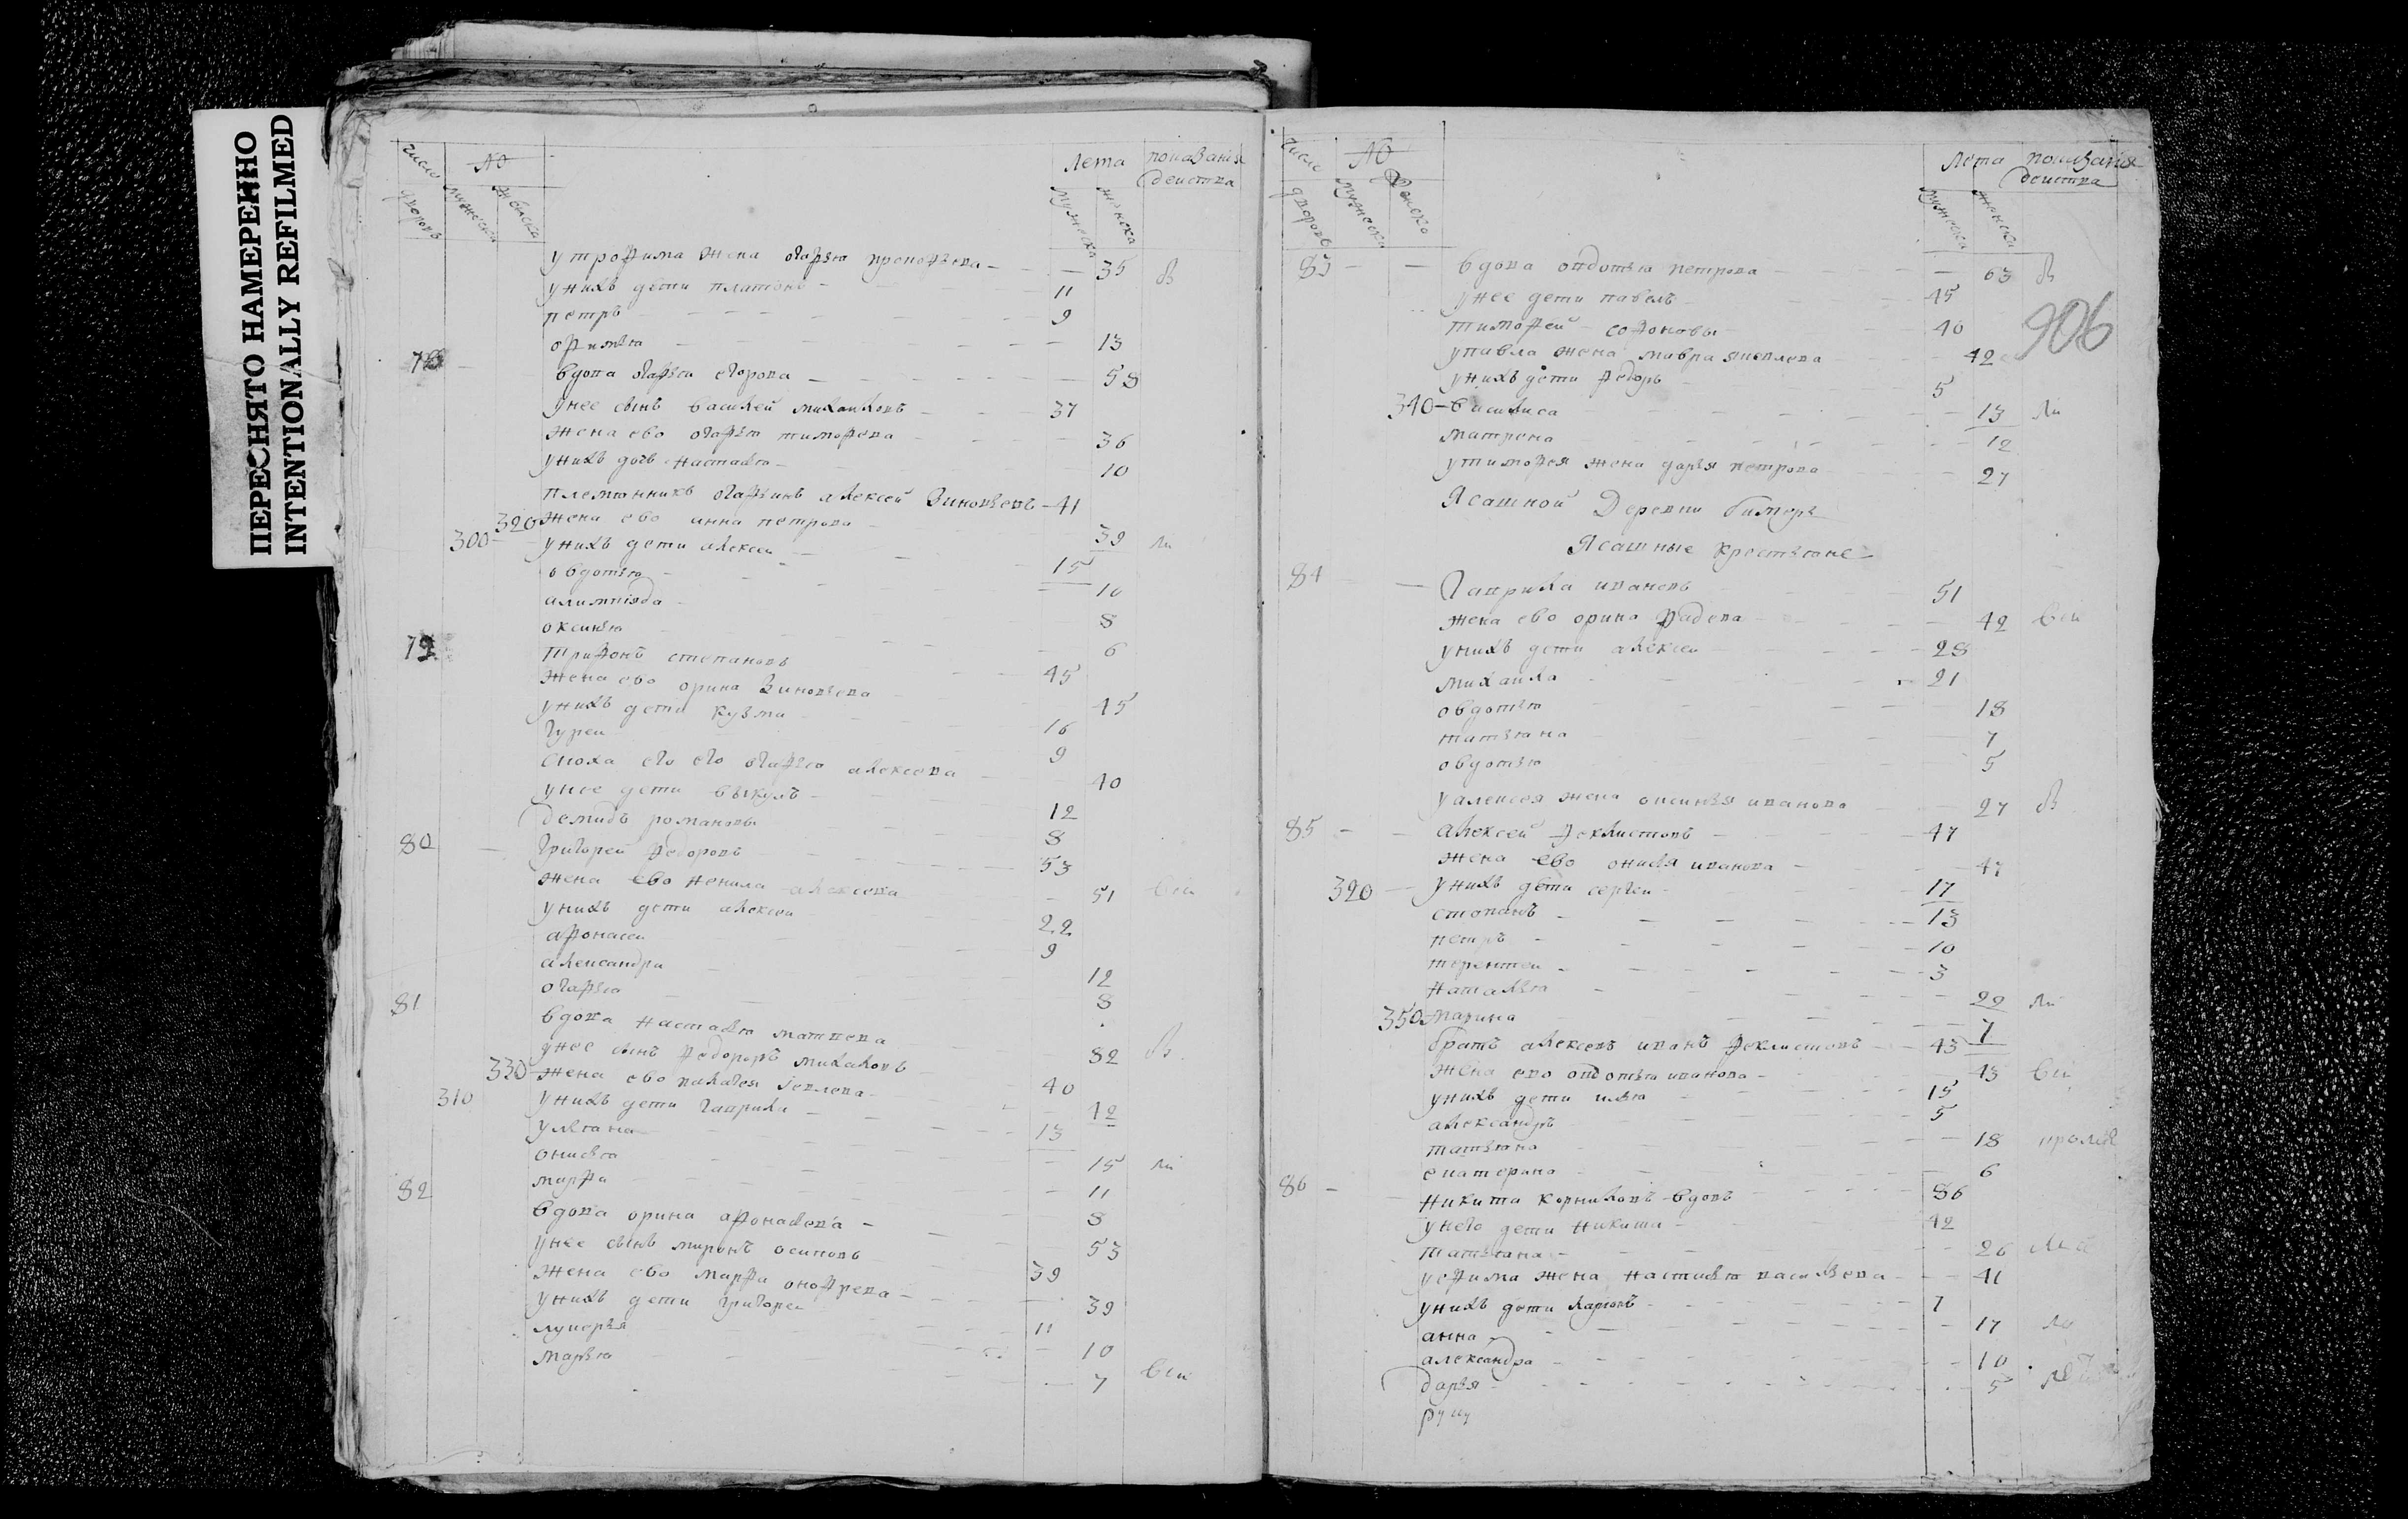 ПЕРЕСНЯТО НАМЕРЕННО
INTENTIONALLY REFILMED
число дворовъ
№
мужеска
женска
Лета
мужеска
женска
показания
действа
у трофима жена огафья прокофьева 35
у нихъ дети платонъ 11
петръ 9
офимья 13
78 вдова огафья егорова 58
у нее сынъ василей михаиловъ 37
жена ево огафья тимофева 36
у нихъ дочь настасья 10
племянникъ огафьинъ алексей зиновьевъ 41
320 жена ево анна петрова 39
300 у нихъ дети алексеи 15
овдотья 10
алимпиада 8
оксинья 6
79 трифонъ степановъ 45
жена ево орина зиновьева 45
у нихъ дети кузма 16
гуреи 9
сноха его огафья алексеева 40
у нее дети викулъ 12
демидъ романовы 8
80 григореи федоровъ 53
жена ево ненила алексеева 51
у нихъ дети алексеи 22
афонасеи 9
александра 12
огафья 8
81 вдова настасья матвева 82
у нее сынъ федоръ михаиловъ 40
330 жена ево палагея 42
310 у нихъ дети гаврила 13
ульяна 15
онисья 11
марфа 8
82 вдова орина афонасева 53
у нее сынъ миронъ осиповъ 39
жена ево марфа онофрева 39
у нихъ дети григореи 11
лукерья 10
марья 7
число дворовъ
№
мужеска
женско
Лета
мужеска
женска
показания
действа
906
83 вдова овдотья петрова 63
у нее дети павелъ 45
тимофей софоновы 40
у павла жена мавра яковлева 42
у нихъ дети федоръ 5
340 василиса 13
матрена 12
у тимофея жена дарья петрова 27
Ясашной Деревни бимерь
Ясашные крестьяне
84 Гаврила ивановъ 51
жена ево орина фадева 42
у нихъ дети алексеи 28
михаила 21
овдотья 18
татьяна 7
овдотья 5
у алексея жена оксинья иванова 27
85 алексей феклистовъ 47
жена ево онисья иванова 47
320 у нихъ дети сергеи 17
степанъ 13
петръ 10
терентеи 3
наталья 22
350 марина 7
братъ алексеевъ иванъ феклистовъ 43
жена ево овдотья иванова 43
у нихъ дети илья 15
александръ 5
татьяна 18
екатерина 6
86 никита корниловъ вдовъ 86
у него дети никита 42
татьяна 26
у ефима жена настасья васильева 41
у нихъ дети ларионъ 7
анна 17
александра 10
дарья 5